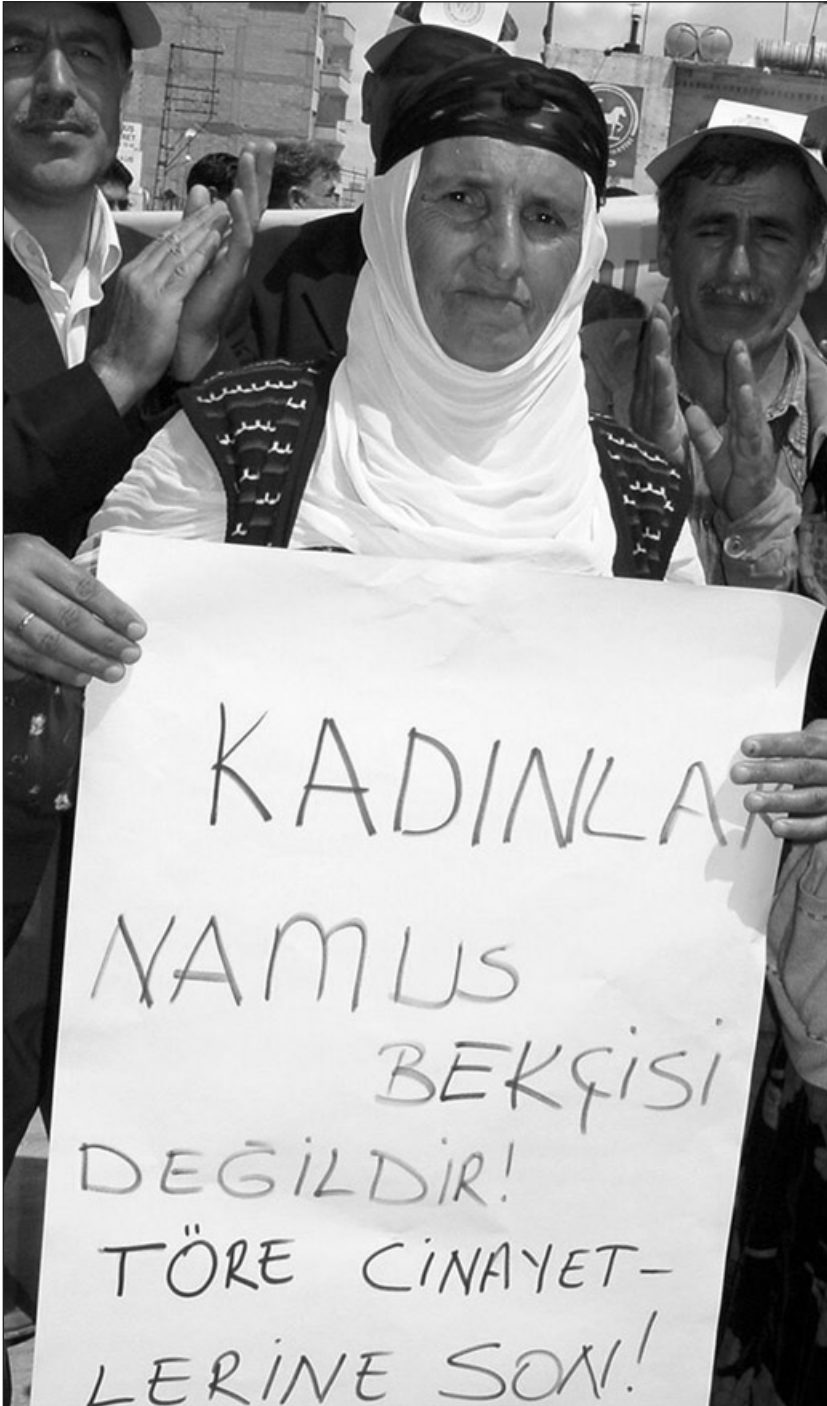 KADINLAR
NAMUS
BEKÇİSİ
DEĞİLDİR!
TÖRE CİNAYET-
LERİNE SON!